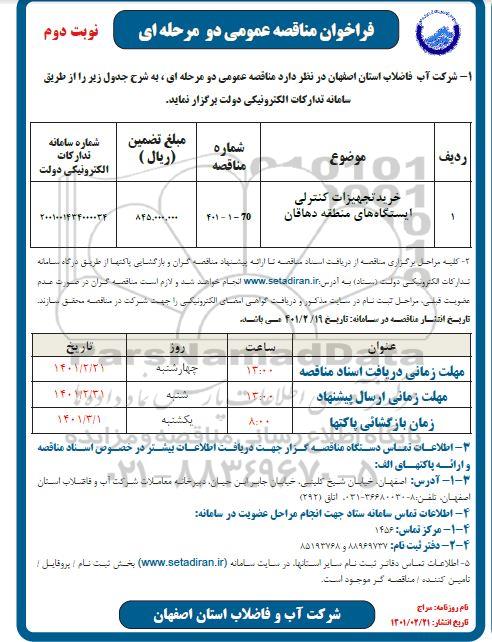 فراخوان مناقصه عمومی دو مرحله ای
نوبت دوم
۱- شرکت آب فاضلاب استان اصفهان در نظر دارد مناقصه عمومی دو مرحله ای ، به شرح جدول زیر را از طریق
سامانه تدارکات الکترونیکی دولت برگزار نماید.
ردیف
موضوع
شماره مناقصه
مبلغ تضمین (ریال)
شماره سامانه تدارکات الکترونیکی دولت
۱
خرید تجهیزات کنترلی ایستگاه‌های منطقه دهاقان
۴۰۱-۱-70
۸۴۵.۰۰۰.۰۰۰
۲۰۰۱۰۰۱۴۳۴۰۰۰۰۳۴
۲- کلیه مراحل برگزاری مناقصه از دریافت اسناد مناقصه تا ارائه پیشنهاد مناقصه گران و بازگشایی پاکتها از طریق درگاه سامانه
تدارکات الکترونیکی دولت (ستاد) به آدرس:www.setadiran.ir انجام خواهد شد و لازم است مناقصه گران در صورت عدم
عضویت قبلی، مراحل ثبت نام در سایت مذکور و دریافت گواهی امضای الکترونیکی را جهت شرکت در مناقصه محقق سازند.
تاریخ انتشار مناقصه در سامانه: تاریخ ۴۰۱/۲/۱۹ می باشد.
عنوان ساعت روز تاریخ
مهلت زمانی دریافت اسناد مناقصه ۱۳:۰۰ چهارشنبه ۱۴۰۱/۲/۲۱
مهلت زمانی ارسال پیشنهاد ۱۳:۰۰ شنبه ۱۴۰۱/۲/۳۱
زمان بازگشائی پاکتها ۸:۰۰ یکشنبه ۱۴۰۱/۳/۱
۳- اطلاعات تماس دستگاه مناقصه گزار جهت دریافت اطلاعات بیشتر در خصوص اسناد مناقصه
و ارائه پاکتهای الف:
۳-۱- آدرس: اصفهان، خیابان شیخ کلینی، خیابان جابرابن حیان، دبیرخانه معاملات شرکت آب و فاضلاب استان
اصفهان، تلفن:۸-۳۶۶۸۰۰۳۰-۰۳۱، اتاق (۲۹۲)
۴- اطلاعات تماس سامانه ستاد جهت انجام مراحل عضویت در سامانه:
۴-۱- مرکز تماس: ۱۴۵۶
۴-۲- دفتر ثبت نام: ۸۸۹۶۹۷۳۷ و ۸۵۱۹۳۷۶۸
۵- اطلاعات تماس دفاتر ثبت نام سایر استانها، در سایت سامانه (www.setadiran.ir) بخش ثبت نام / پروفایل /
تامین کننده / مناقصه گر موجود است.
نام روزنامه: سراج
تاریخ انتشار: ۱۴۰۱/۰۲/۲۱
شرکت آب و فاضلاب استان اصفهان
ParsNamadData
پایگاه اطلاع رسانی مناقصه و مزایده
۰۲۱-۸۸۳۴۹۶۷۰-۵